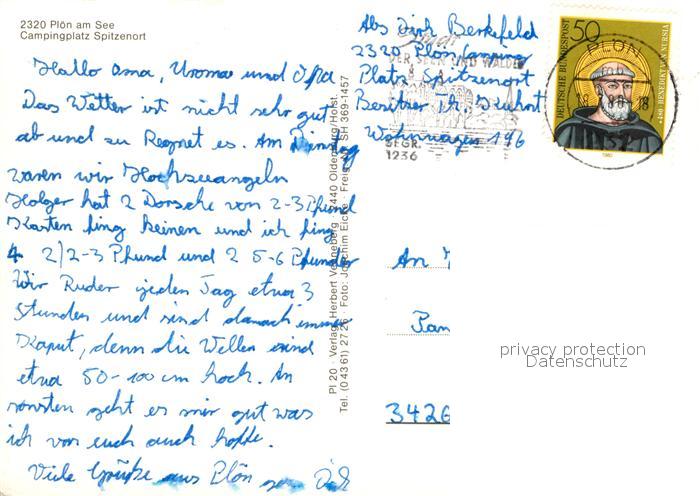 2320 Plön am See
Campingplatz Spitzenort
Hallo Oma, Uroma und Opa
Das Wetter ist nicht sehr gut
ab und zu Regnet es. Am Dienstag
waren wir Hochseeangeln
Holger hat 2 Dorsche von 2-3 Pfund
Karsten fing keinen und ich fing
4 2/2-3 Pfund und 2 5-6 Pfunder
Wir Ruder jeden Tag etwa 3
Stunden und sind danach immer
Kaput, denn die Wellen sind
etwa 50-100 cm hoch. An
sonsten geht es mir gut was
ich von euch auch hoffe.
Viele Grüße aus Plön
Pl 20 · Verlag Herbert · 2440 Oldenburg/Holst.
Tel. (0 43 61) 27 26 · Foto: Joachim Eicke · Freig. SH 369-1457
Abs Dirk Berkefeld
2320 Plön Camping
Platz Spitzenort
Besitzer Th. Kuhnt
Wohnwagen 196
DER SEEN UND WÄLDER
SEGR.
1236
50
DEUTSCHE BUNDESPOST
480 · BENEDIKT VON NURSIA
1980
PLÖN
An
3426
privacy protection
Datenschutz